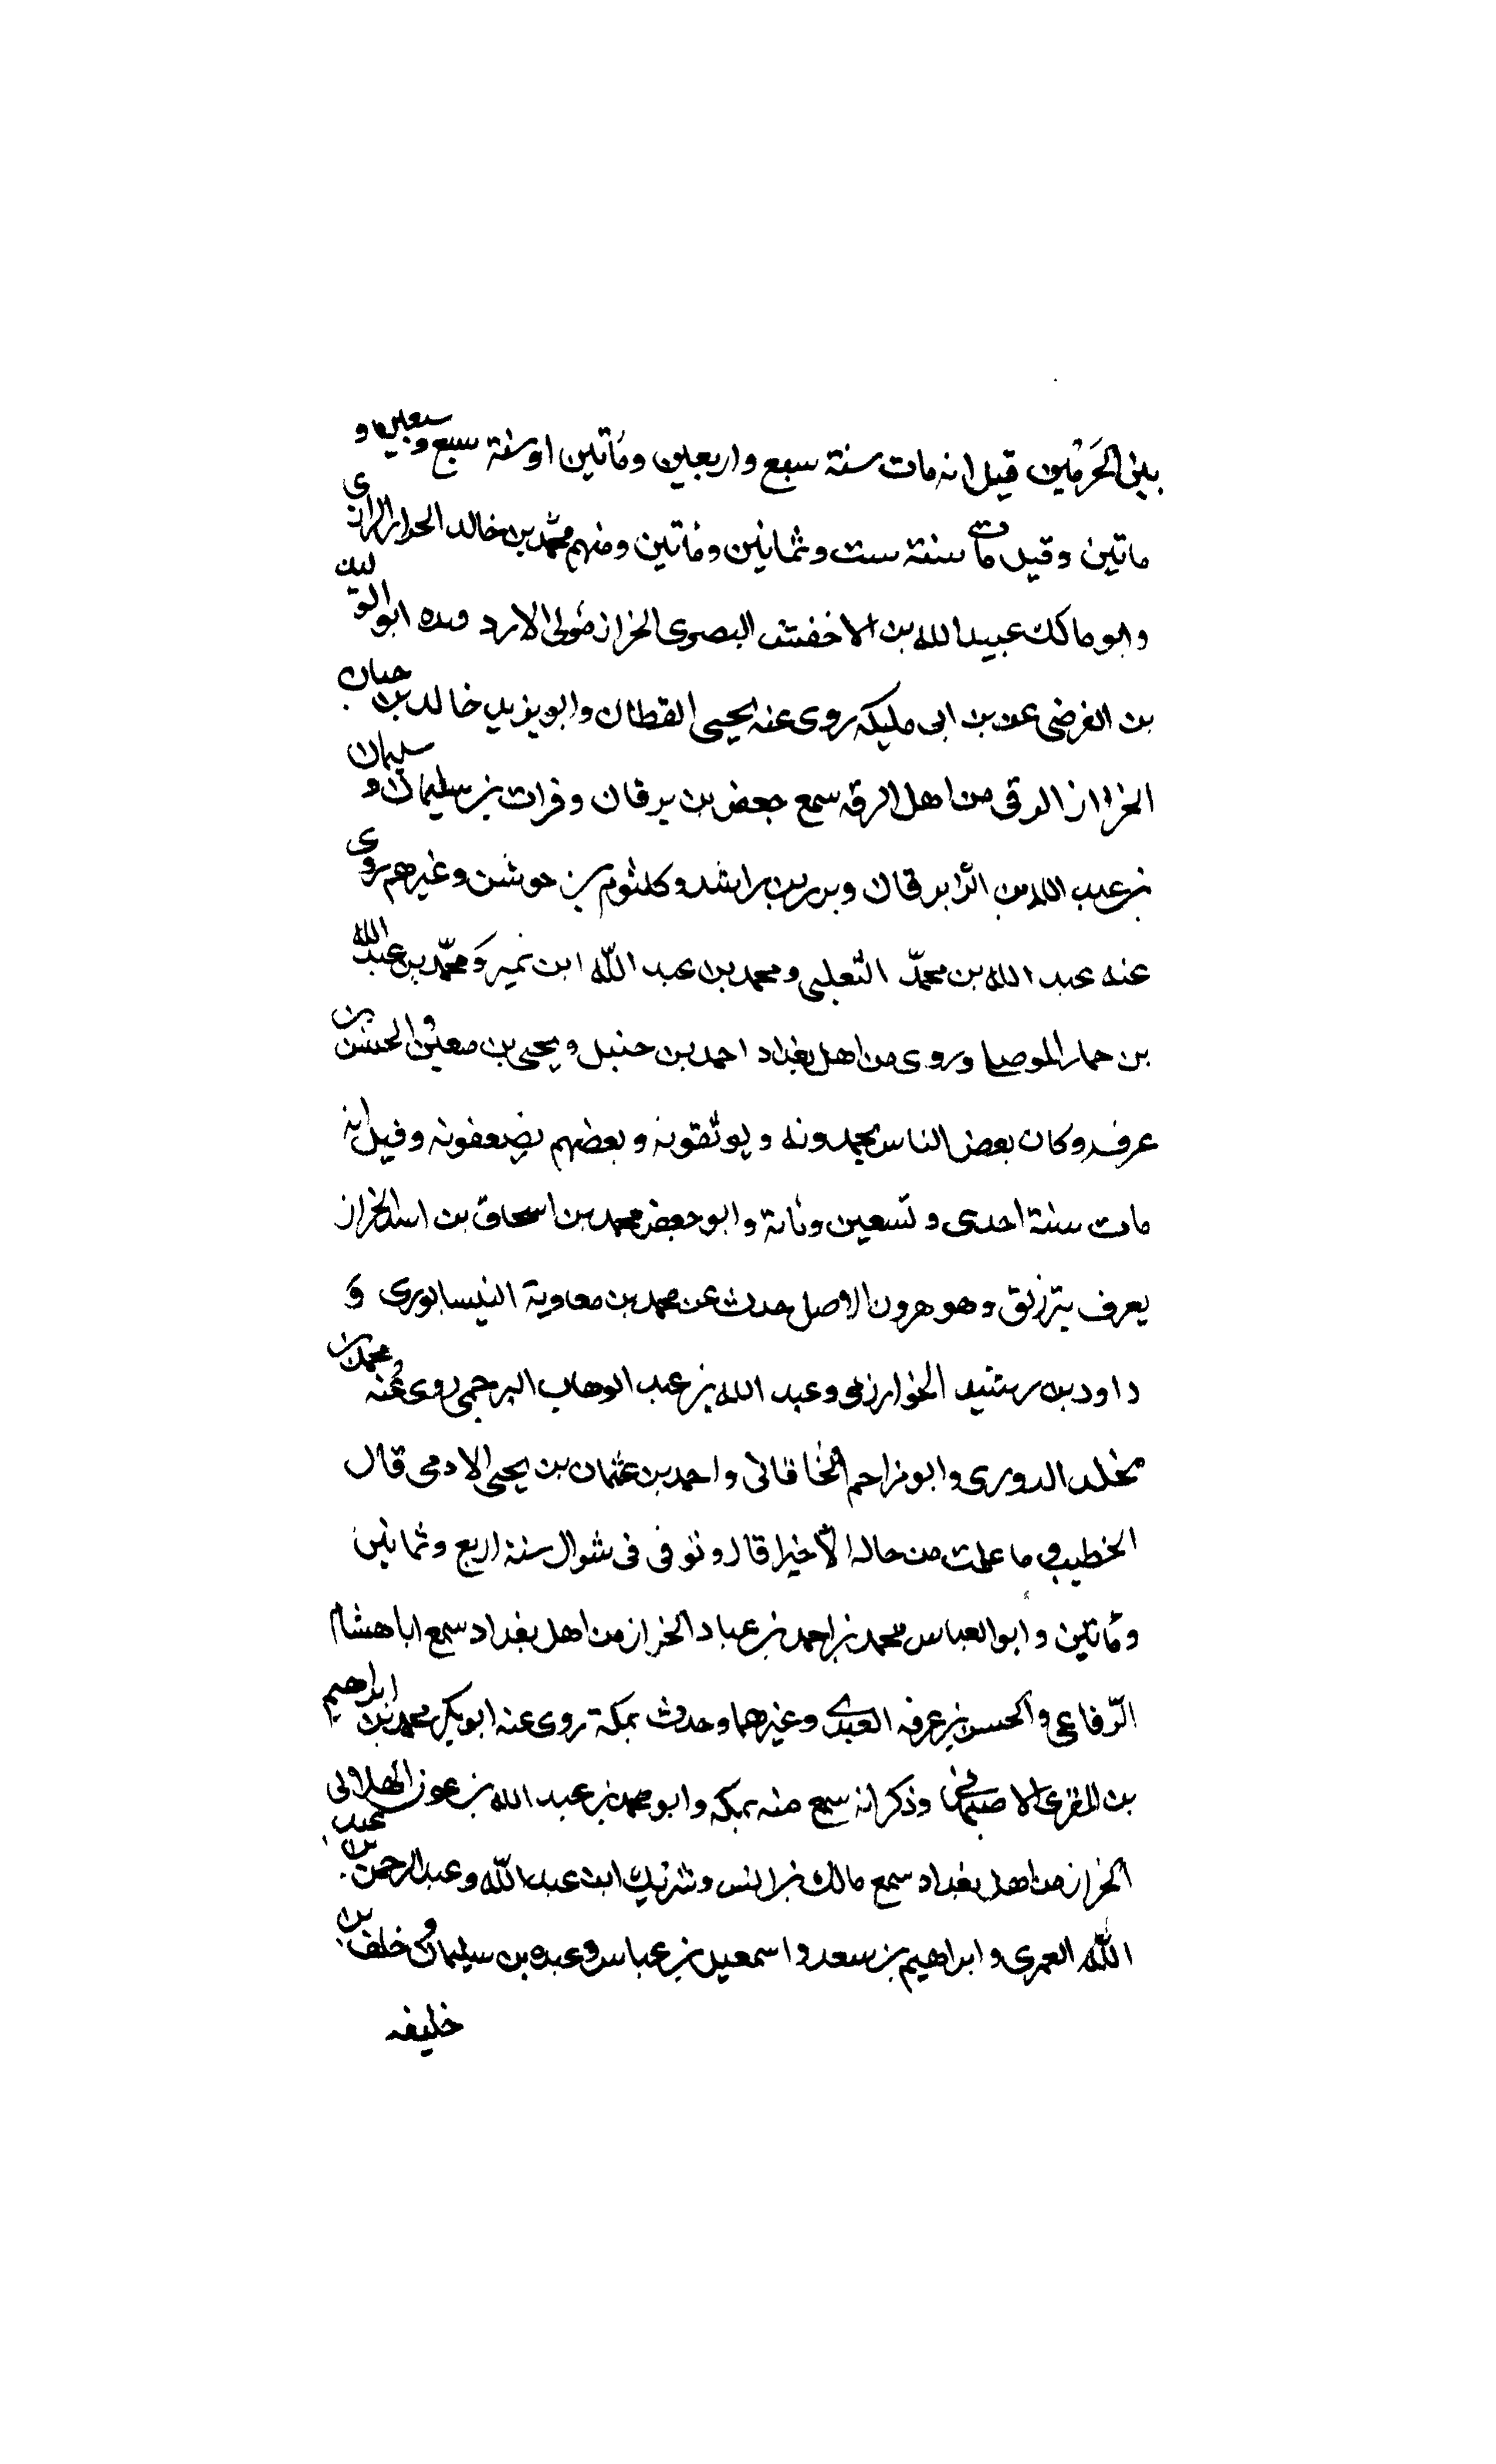 بين الحَرمين قيل انه مات سنة سبع واربعين ومأتين او سنة سبع وسبعين و
ماتين وقيل مات سنة ست وثمانين ومأتين ومنهم محمّد بن خالد الخراز الرازى
وابو مالك عبيد الله بن الاخفش البصرى الخراز مولى الازد وىده ابو الوليد
بن الفرضى عن بن ابى مليكه روى عنه يحيى القطان وابو يزيد خالد بن حيان
الخراز الرقى من اهل الرقه سمع جعفر بن برقان وفرات بن سليمان و سليمان
بن عبد الله بن الزابرقان وبدر بن راشد وكلثوم بن حوشن وغيرهم روى
عنه عبد الله بن محمدّ الثعلبى ومحمد بن عبد اللّه ابن نمير وَمحمّد بن عبد الله
بن حمار الموصلى وروى من اهل بغداد احمد بن حنبل ويحيى بن معين والحسن بن
عرفه وكان بعض الناس يحمدونه ويوثقونه وبعضهم يضعفونه وقيل انه
مات سنة احدى وتسعين ومأئة وابو جعفر محمد بن اسحاق بن اسد الخراز
يعرف بترزيق وهو هرون الاصل حدث عن محمد بن معاوية النيسابورى وَ
داود بن رشيد الخوارزمى وعبد الله بن عبد الوهاب البرجمى روى عنه محمد بن
مخلد الدورى وابو مزاحم الخاقانى واحمد بن عثمان بن يحيى الادمى قال
الخطيب وما علمت من حاله الّا خيرا قال وتوفى فى شوال سنة اربع وثمانين
ومأتين وابو العباس محمد بن احمد بن عباد الخراز من اهل بغداد سمع ابا هشام
الرّفاعى والحسن بن عرفه العبدى وغيرهما وحدث بمكة روى عنه ابو بكر محمد بن ابراهيم
بن المقرى الاصبهانى وذكر انه سمع منه بمكه وابو محمد بن عبد الله بن عون الهلالى
الخراز من اهل بغداد سمع مالك بن انس وشريك ابن عبد اللّه وعبد الرحمن بن عبد
اللّٰه العمرى وابراهيم بن سعد واسمعيل بن عباس وعبده بن سليمان وخلف بن
خليفه